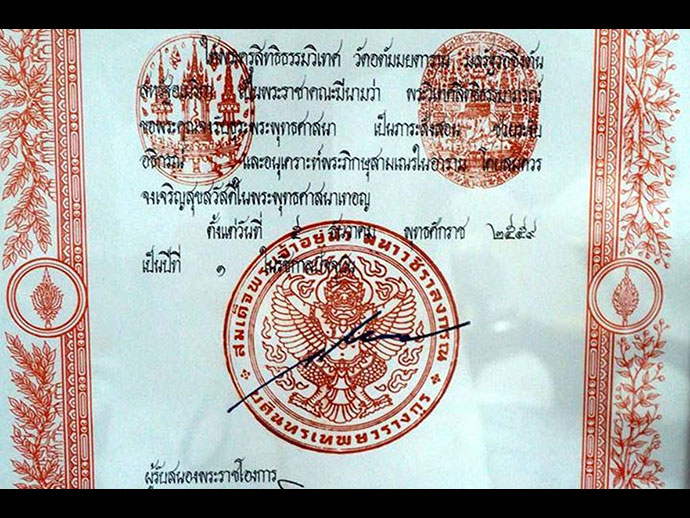 ให้พระครูสิทธิธรรมวิเทศ วัดอตัมมยตาราม มลรัฐวอชิงตัน
สหรัฐอเมริกา เป็นพระราชาคณะมีนามว่า พระวิเทศสิทธิธรรมาภรณ์
ขอพระคุณจงรับธุระพระพุทธศาสนา เป็นภาระสั่งสอน ช่วยระงับ
อธิกรณ์ และอนุเคราะห์พระภิกษุสามเณรในอาราม โดยสมควร
จงเจริญสุขสวัสดิ์ในพระพุทธศาสนาเทอญ
ตั้งแต่วันที่ ๕ ธันวาคม พุทธศักราช ๒๕๕๙
เป็นปีที่ ๑ ในรัชกาลปัจจุบัน
สมเด็จพระเจ้าอยู่หัว มหาวชิราลงกรณ
บดินทรเทพยวรางกูร
ผู้รับสนองพระราชโองการ